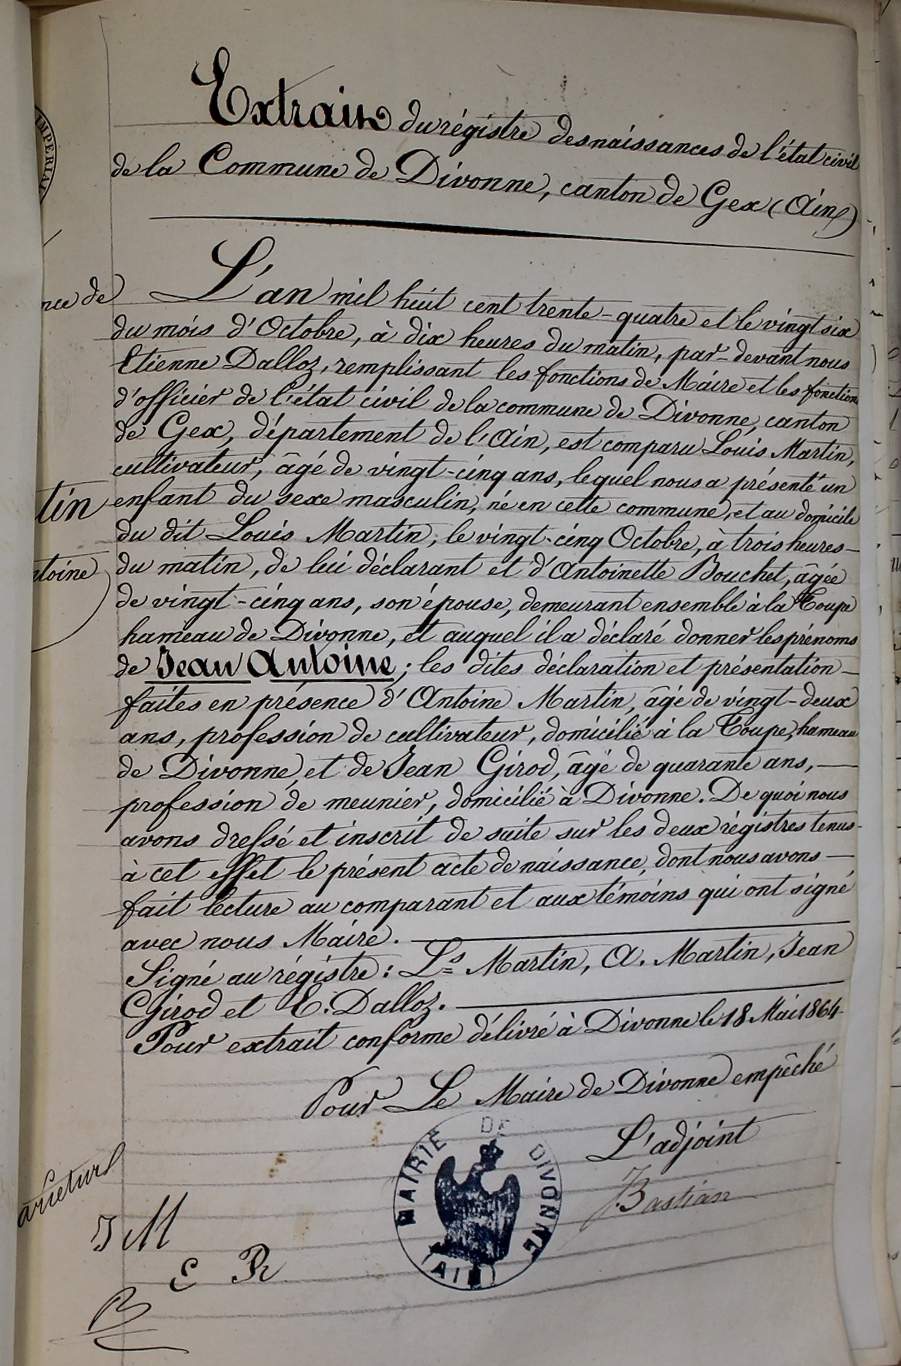 Extrait du régistre des naissances de l'état civil
de la Commune de Divonne, canton de Gex (Ain)
IMPERIAL
nce de
L'an mil huit cent trente-quatre et le vingt six
du mois d'Octobre, à dix heures du matin, par-devant nous
Etienne Dalloz, remplissant les fonctions de Maire et les fonctions
d'officier de l'état civil de la commune de Divonne, canton
de Gex, département de l'Ain, est comparu Louis Martin,
cultivateur, âgé de vingt-cinq ans, lequel nous a présenté un
tin
enfant du sexe masculin, né en cette commune, et au domicile
du dit Louis Martin, le vingt-cinq Octobre, à trois heures
toine
du matin, de lui déclarant et d'Antoinette Bouchet, âgée
de vingt-cinq ans, son épouse, demeurant ensemble à la Toupe
hameau de Divonne, et auquel il a déclaré donner les prénoms
de Jean Antoine; les dites déclaration et présentation
faites en présence d'Antoine Martin, âgé de vingt-deux
ans, profession de cultivateur, domicilié à la Toupe, hameau
de Divonne, et de Jean Girod, âgé de quarante ans,
profession de meunier, domicilié à Divonne. De quoi nous
avons dressé et inscrit de suite sur les deux régistres tenus
à cet effet le présent acte de naissance, dont nous avons
fait lecture au comparant et aux témoins qui ont signé
avec nous Maire.
Signé au régistre: Ls Martin, A. Martin, Jean
Girod et E. Dalloz.
Pour extrait conforme délivré à Divonne le 18 Mai 1864
Pour Le Maire de Divonne empêché
L'adjoint
Bastian
MAIRIE DE DIVONNE
(AIN)
J M
E R
B